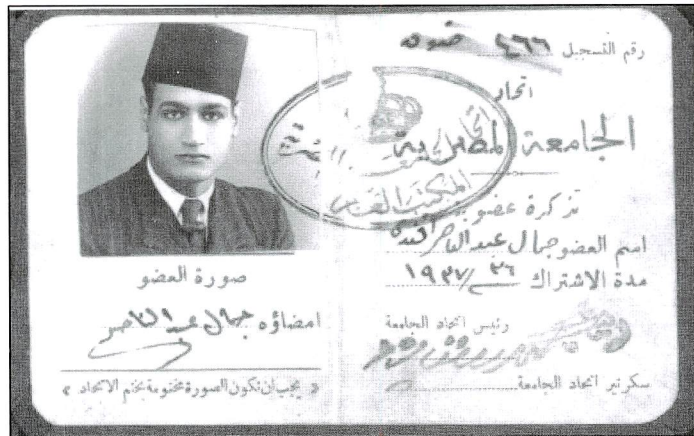 رقم التسجيل ٤٦٦
اتحاد
الجامعة المصرية
تذكرة عضوية
اسم العضو جمال عبد الناصر افندى
مدة الاشتراك ٣٦ / ١٩٣٧
رئيس اتحاد الجامعة
سكرتير اتحاد الجامعة
صورة العضو
امضاؤه جمال عبد الناصر
« يجب ان تكون الصورة مختومة بختم الاتحاد »